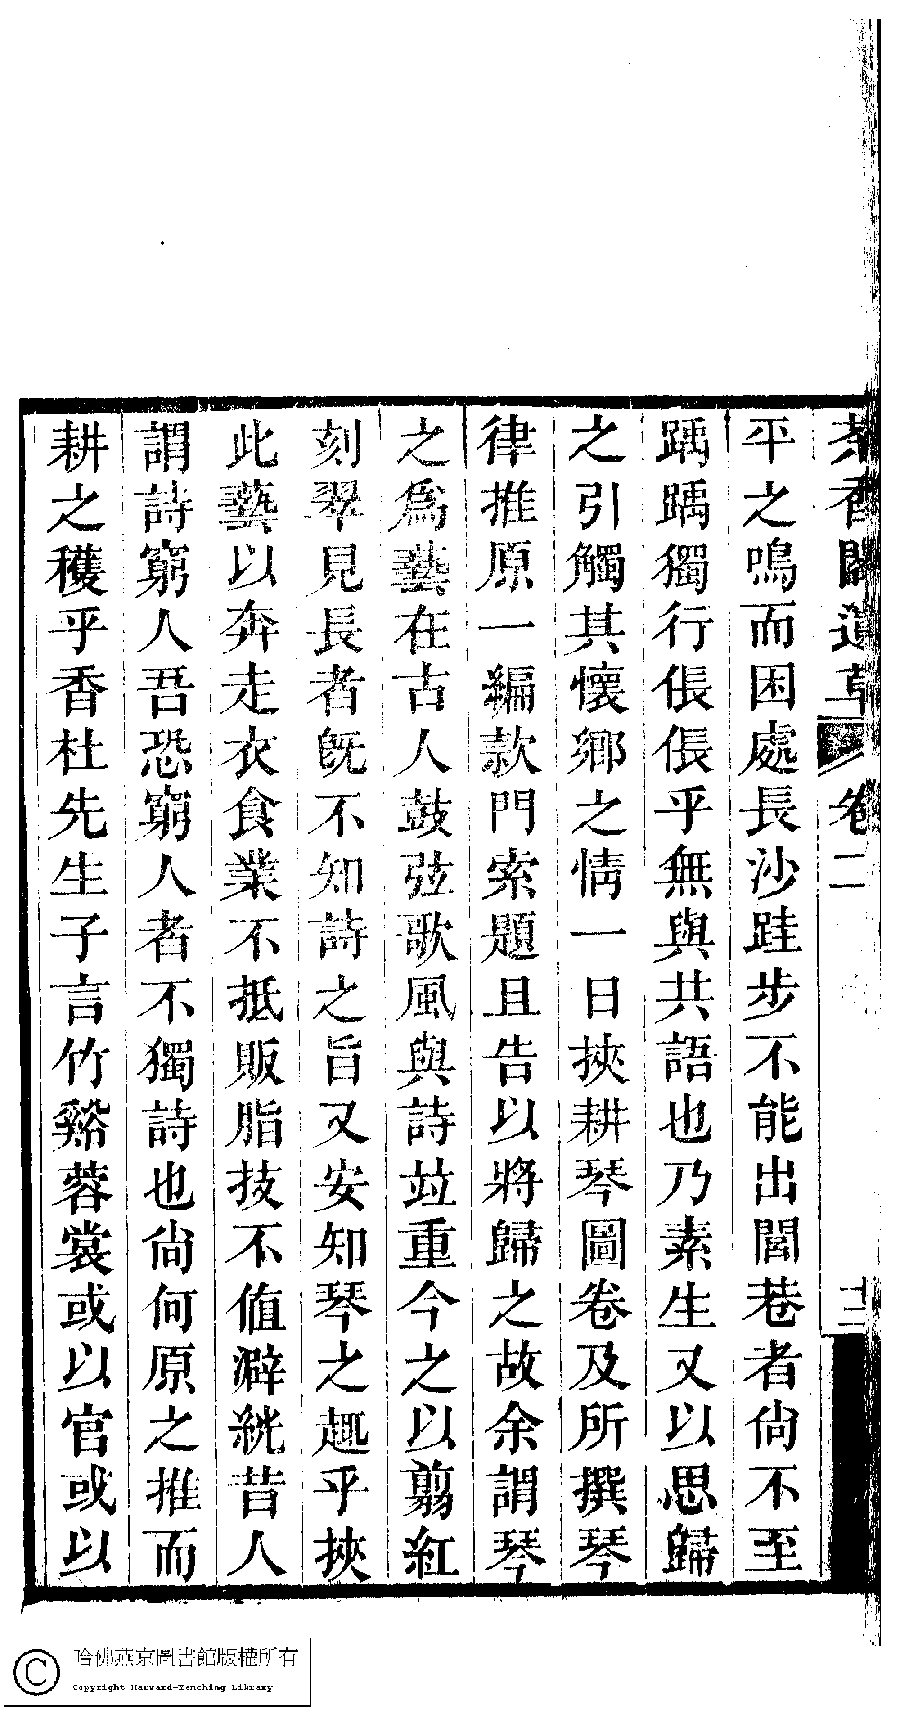 茶香閣遺草 卷二 十二
平之鳴而困處長沙跬步不能出閭巷者尙不至
踽踽獨行倀倀乎無與共語也乃素生又以思歸
之引觸其懷鄉之情一日挾耕琴圖卷及所撰琴
律推原一編款門索題且告以將歸之故余謂琴
之爲藝在古人鼓弦歌風與詩竝重今之以翦紅
刻翠見長者旣不知詩之旨又安知琴之趣乎挾
此藝以奔走衣食業不抵販脂技不値澼絖昔人
謂詩窮人吾恐窮人者不獨詩也尙何原之推而
耕之穫乎香杜先生子言竹谿蓉裳或以官或以
哈佛燕京圖書館版權所有
Copyright Harvard-Yenching Library